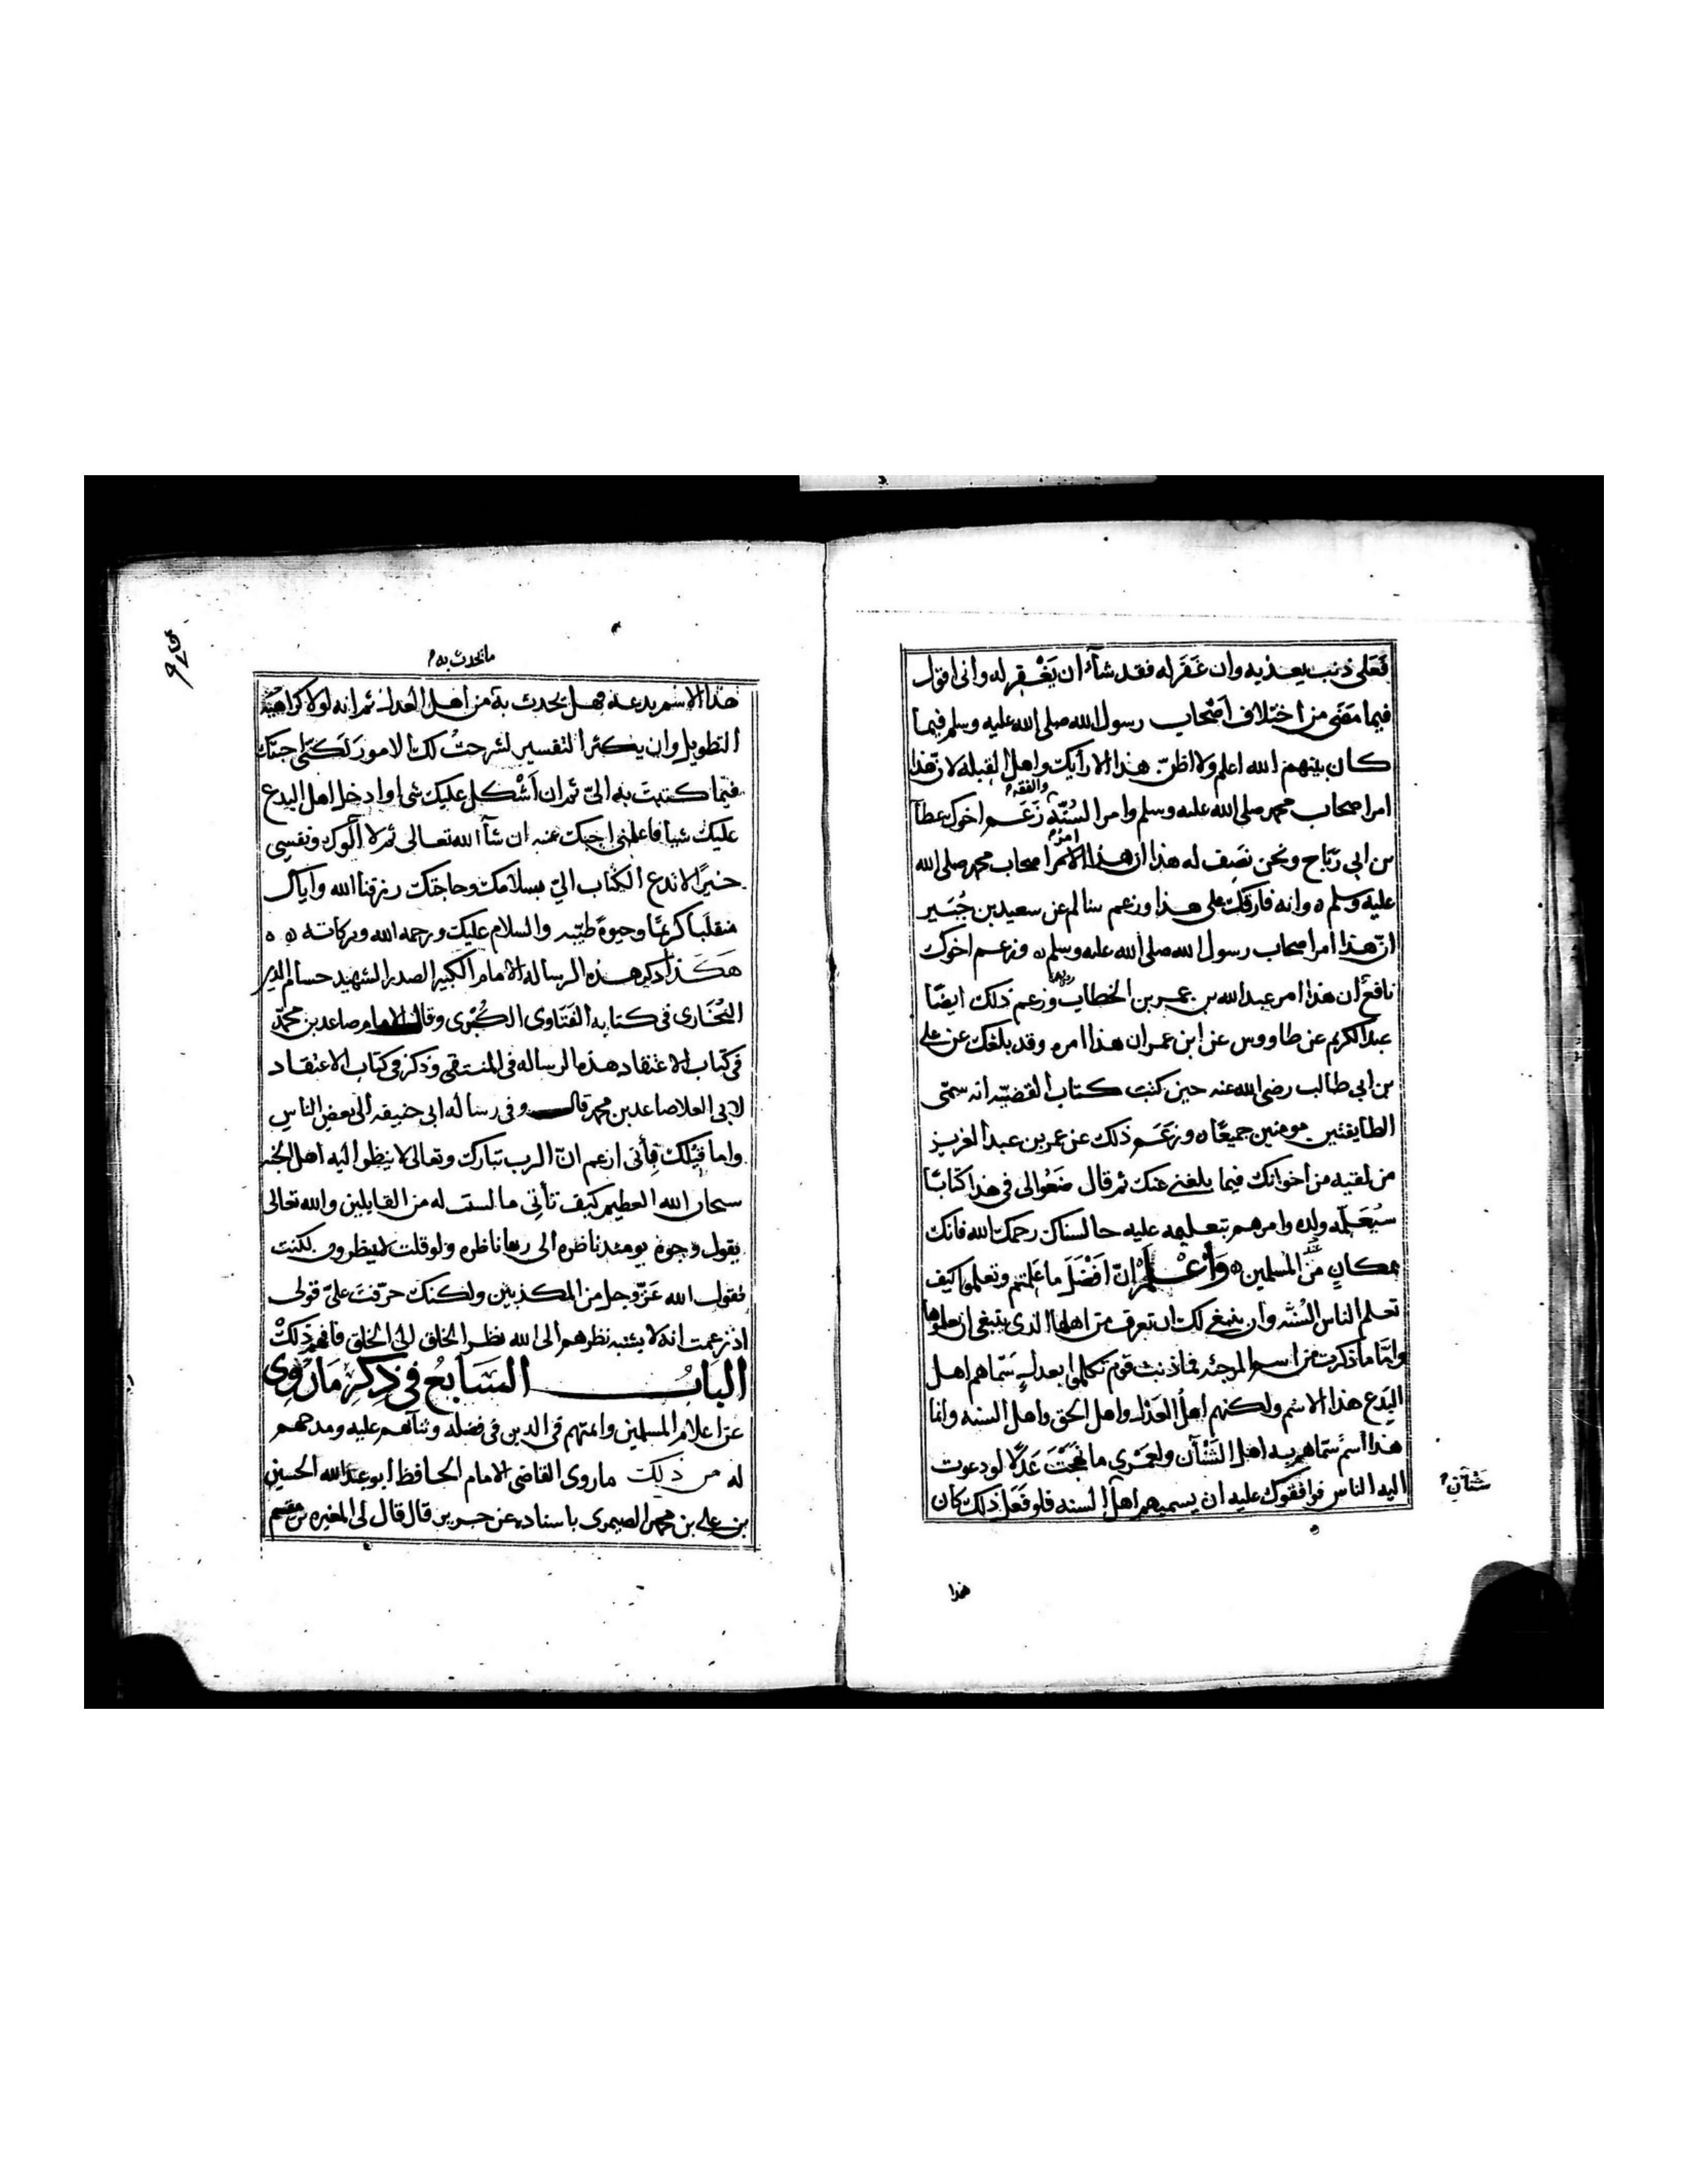 فَعَلى ذنب يعذبه وان غفَرَ له فقد شآء ان يَغْفِر له وانى اقول
فيما مَضَى من اختلاف اصْحاب رسول الله صلى الله عليه وسلم فيما
كان بينهم الله اعلم ولا اظنّ هذا الا رأيك واهل القبله لان هذا
والفقه
امر اصحاب محمد صلى الله عليه وسلم وامر السُنّه زَعَم اخوك عطآ
امر
بن ابى رَبَاح ونحن نصَف له هذا ان هذا الامر اصحاب محمد صلى الله
عليه وسلم ه وانه فارقك على هذا وزعم سالم عن سعيد بن جُبَير
انّ هذا امر اصحاب رسول الله صلى الله عليه وسلم ه وزعم اخوك
نافع أن هذا امر عبد الله بن عمر بن الخطاب وزعم ذلك ايضًا
عبد الكريم عن طاووس عن ابن عمر ان هذا امره وقد بلغك عن على
بن ابى طالب رضى الله عنه حين كتب كتاب القضيّه انه سمّى
الطايفتين مومنين جميعًا ه وزَعَم ذلك عن عمر بن عبد العزيز
من لقيه من اخوانك فيما بلغنى عنك ثم قال ضَعُوا لى فى هذا كتابًا
ولده وامرهم بتعليمه عليه جالسناك رحمك الله فانك
بمكانٍ من المسلمين ه وَأعْلمْ انّ افضَلَ ما عَلمتم وتعلموا كيف
تعلم الناس السُنّه وان ينبغى لك ان تعرف من اهلها الذى ينبغى ان
واما ما ذكرت من اسم المرجئه فما ذنب قوم تكلموا بعدلٍ سَمّاهم اهل
البدَع هذا الاسم ولكنهم اهلُ العَدْل واهل الحق واهل السنه وانما
هذا اسمٌ سَمّاهم به اهل الشَنْآن ولعَمْرى ما عَدْلًا لو دعوت
شَنْآنٍ
اليه الناس فوافقوك عليه ان يسميهم اهل السنه فلو فعَل ذلك كان
هذا
ما تحدث به
هذا الاسم بدعه فهل يحدث به من اهل العدل ثم انه لولا كراهيّة
التطويل وان يكثر التفسير لشرحتُ لك الامورَ لَكنّى اجبتك
فيما كتبت به الىّ ثم ان اَشْكل عليك شى او ادخل اهل البدع
عليك شيا فاعلمنى اجبك عنه ان شآ الله تعالى ثم لا آلوك ونفسى
خيرًا لا تدع الكتاب الىّ بسلامتك وحاجتك رزقنا الله واياك
منقلبًا كريمًا وحيوةً طيّبه والسلام عليك ورحمه الله وبركاته ه ه
هكَذا ذكر هذه الرساله الامام الكبير الصدر الشهيد حسام الدين
البُخارى فى كتابه الفَتاوى الكُبرى وقال الامام صاعد بن محمّد
فى كتاب الاعتقاد هذه الرساله فى المنتقى وذكر فى كتاب الاعتقاد
لابى العلا صاعد بن محمد قال وفى رساله ابى حنيفه الى بعض الناس
واما قيلك فأنى ازعم انّ الرب تبارك وتعالى لا ينظر اليه اهل الجنه
سبحان الله العظيم كيف تأتى ما لست له من القايلين والله تعالى
يقول وجوة يومئذ ناظره الى ربها ناظره ولو قلت لا ينظرون لكنت
بقول الله عَزّ وجل من المكذبين ولكنك حرّفت علىّ قولى
اذ زعمت انه لا يشبه نظرهم الى الله نظر الخلق الى الخلق فافهم ذلكْ
البَابُ السَّابعُ فى ذكرِ مَا رُوِى
عن اعلام المسلمين وائمتهم فى الدين فى فضله وثنآهم عليه ومدحهم
له من ذلك ما روى القاضى الامام الحافظ ابو عبد الله الحسين
بن على بن محمد الصيمرى باسناده عن جرير قال قال لى المغيره بن مقسم